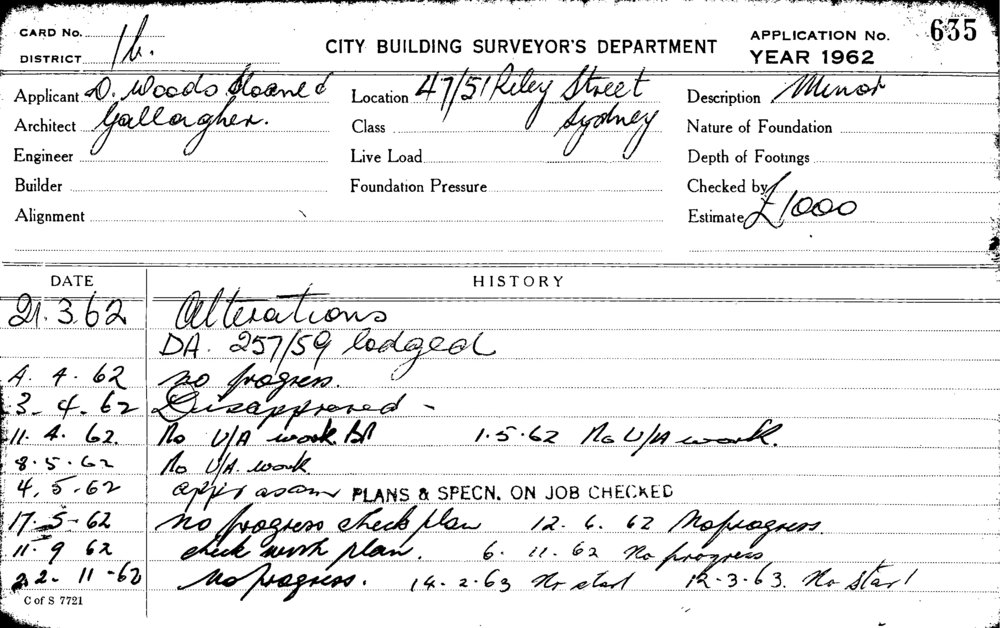 CARD No.
DISTRICT 1b.
CITY BUILDING SURVEYOR'S DEPARTMENT
APPLICATION No. 635
YEAR 1962
Applicant D. Woods Sloane &
Architect Gallagher.
Engineer
Builder
Alignment
Location 47/51 Riley Street
Class Sydney
Live Load
Foundation Pressure
Description Minor
Nature of Foundation
Depth of Footings
Checked by
Estimate £1000
DATE HISTORY
21.3.62 Alterations
DA. 257/59 lodged
4. 4. 62 no progress.
3-4-62 Disapproved -
11. 4. 62. No U/A work 1.5.62 No U/A work.
8.5.62 No U/A. work
4.5.62 PLANS & SPECN. ON JOB CHECKED
17-5-62 no progress check plan 12. 6. 62 No progress.
11. 9 62 check with plan. 6. 11.62 no progress
22-11-62 No progress. 14.2.63 No start 12-3-63. No start
C of S 7721